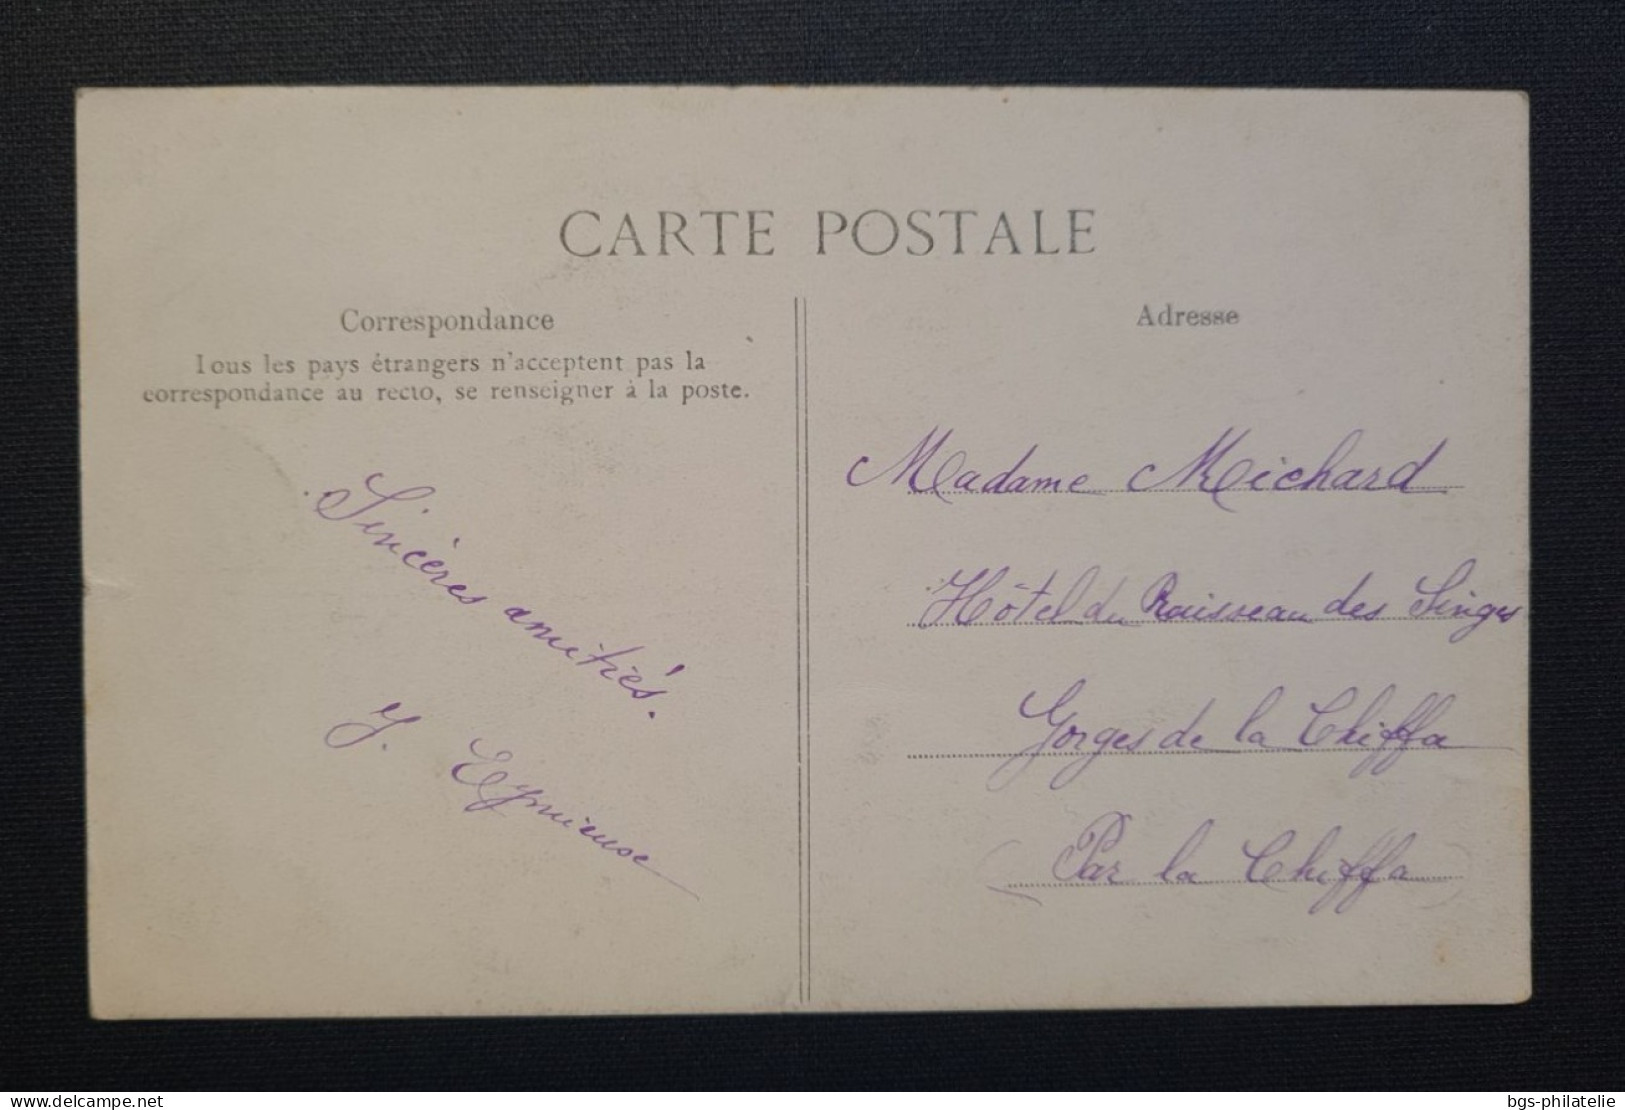 CARTE POSTALE
Correspondance
Tous les pays étrangers n'acceptent pas la
correspondance au recto, se renseigner à la poste.
Sincères amitiés.
Y. Eymieuse
Adresse
Madame Michard
Hôtel du Ruisseau des Singes
Gorges de la Chiffa
(Par la Chiffa)
www.delcampe.net
bgs-philatelie